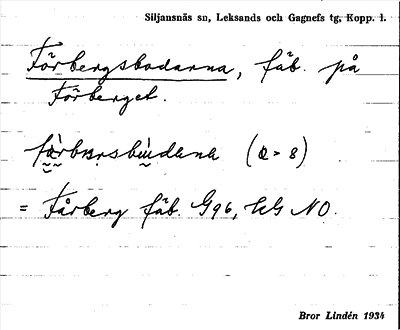 Siljansnäs sn, Leksands och Gagnefs tg, Kopp. l.
Förbergsbodarna, fäb. på
Förberget.
(a > 8)
= Fårberg fäb. G96, NO.
Bror Lindén 1934